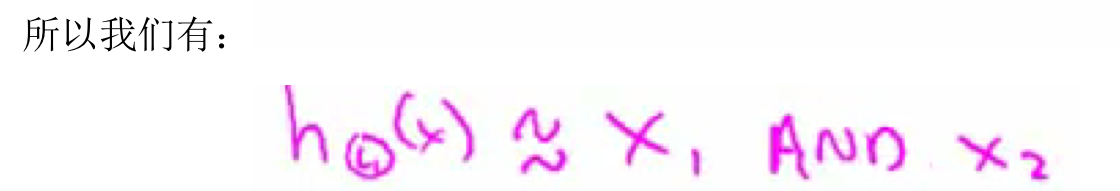 所以我们有：
h_Θ(x) ≈ x₁ AND x₂